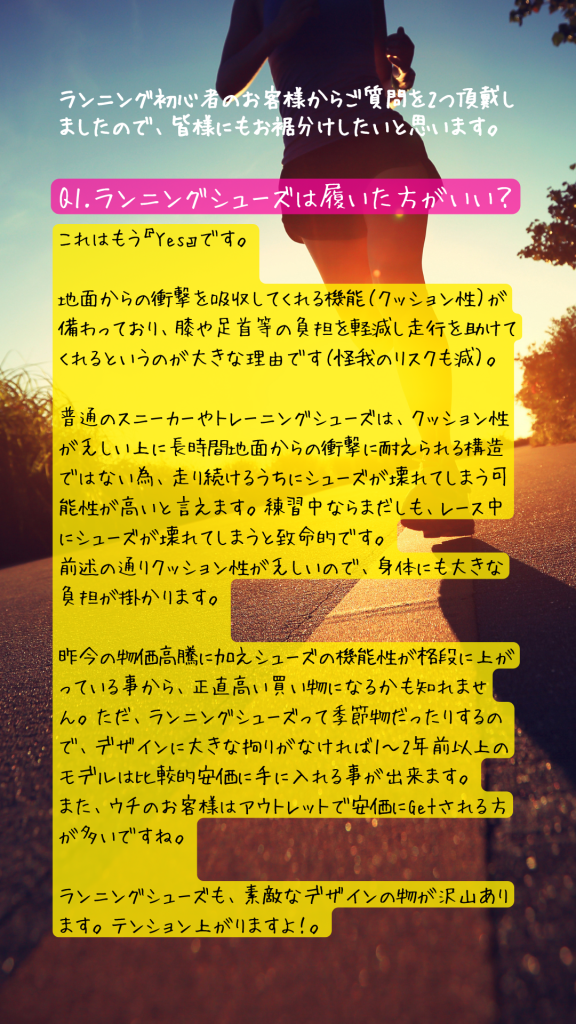 ランニング初心者のお客様からご質問を2つ頂戴し
ましたので、皆様にもお裾分けしたいと思います。
Q1.ランニングシューズは履いた方がいい?
これはもう『Yes』です。
地面からの衝撃を吸収してくれる機能(クッション性)が
備わっており、膝や足首等の負担を軽減し走行を助けて
くれるというのが大きな理由です(怪我のリスクも減)。
普通のスニーカーやトレーニングシューズは、クッション性
が乏しい上に長時間地面からの衝撃に耐えられる構造
ではない為、走り続けるうちにシューズが壊れてしまう可
能性が高いと言えます。練習中ならまだしも、レース中
にシューズが壊れてしまうと致命的です。
前述の通りクッション性が乏しいので、身体にも大きな
負担が掛かります。
昨今の物価高騰に加えシューズの機能性が格段に上が
っている事から、正直高い買い物になるかも知れませ
ん。ただ、ランニングシューズって季節物だったりするの
で、デザインに大きな拘りがなければ1〜2年前以上の
モデルは比較的安価に手に入れる事が出来ます。
また、ウチのお客様はアウトレットで安価にGetされる方
が多いですね。
ランニングシューズも、素敵なデザインの物が沢山あり
ます。テンション上がりますよ!。